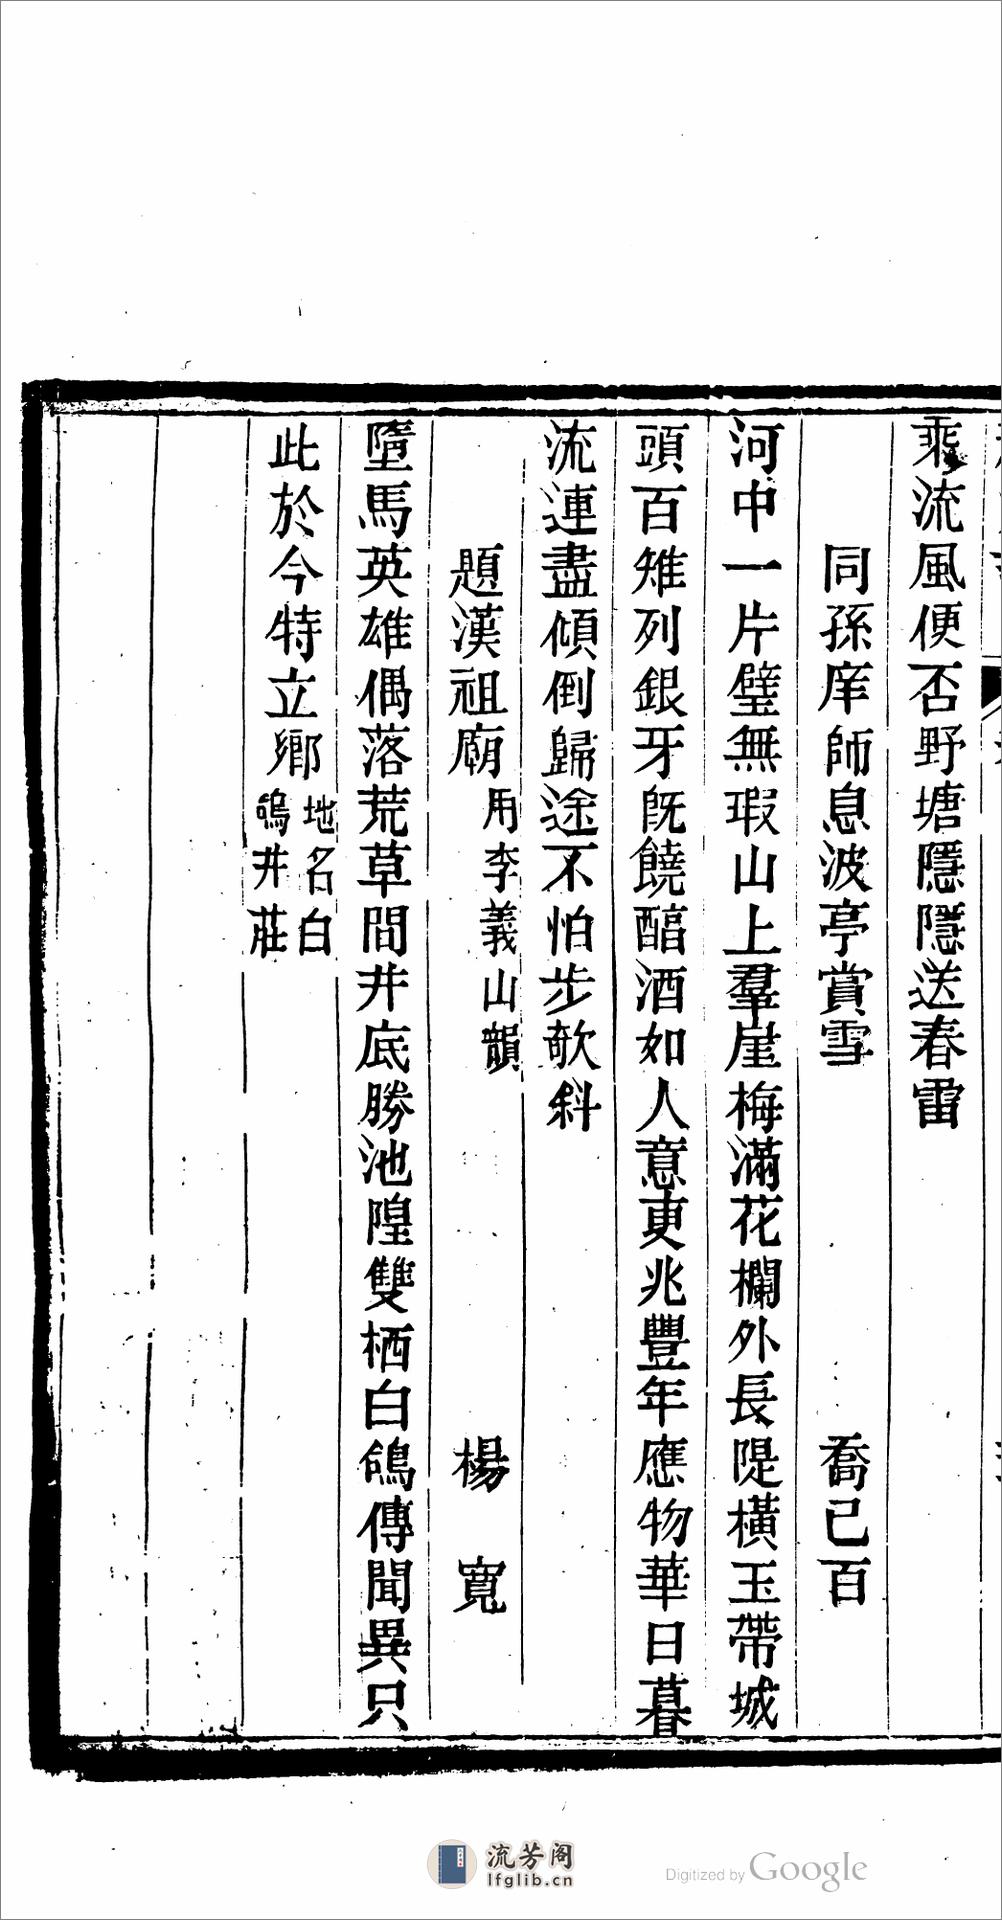 乘流風便否野塘隱隱送春雷
同孫庠師息波亭賞雪 喬已百
河中一片璧無瑕山上羣崖梅滿花欄外長隄橫玉帶城
頭百雉列銀牙旣饒醅酒如人意更兆豐年應物華日暮
流連盡傾倒歸途不怕步欹斜
題漢祖廟用李義山韻 楊寬
墮馬英雄偶落荒草間井底勝池隍雙栖白鴿傳聞異只
此於今特立鄉地名白鴿井莊
流芳阁
lfglib.cn
Digitized by Google